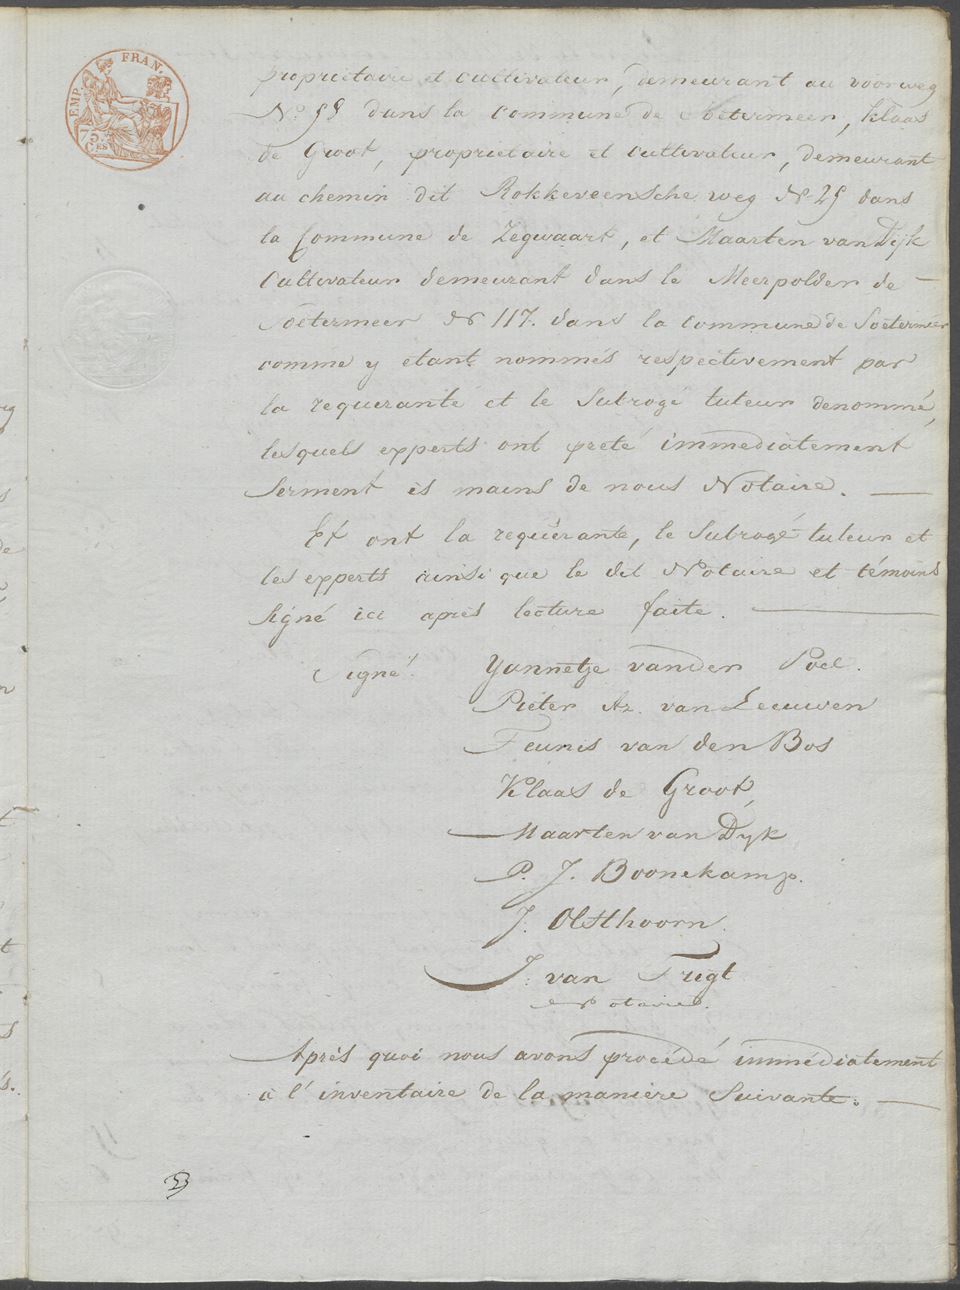 EMP. FRAN.
75 CES
propriétaire et cultivateur, demeurant au voorweg
No. 58 dans la commune de Soetermeer, Klaas
de Groot, propriétaire et cultivateur, demeurant
au chemin dit Rokkeveensche weg No 29 dans
la Commune de Zegwaart, et Maarten van Dijk
Cultivateur demeurant dans le Meerpolder de —
Soetermeer No 117. dans la commune de Soetermeer
comme y étant nommés respectivement par
la requerante et le Subrogé tuteur denommé,
lesquels experts ont preté immediatement
Serment ès mains de nous Notaire. —
Et ont la requérante, le Subrogé tuteur et
les experts ainsi que le dit Notaire et témoins
Signé ici après lecture faite. —
Signé. Yannetje vander Poel.
Pieter Az. van Leeuwen
Teunis van den Bos
Klaas de Groot,
Maarten van Dyk
P. J. Boonekamp.
J. Olsthoorn.
J. van Trigt
Notaire.
Après quoi nous avons procédé immédiatement
à l'inventaire de la manière Suivante. —